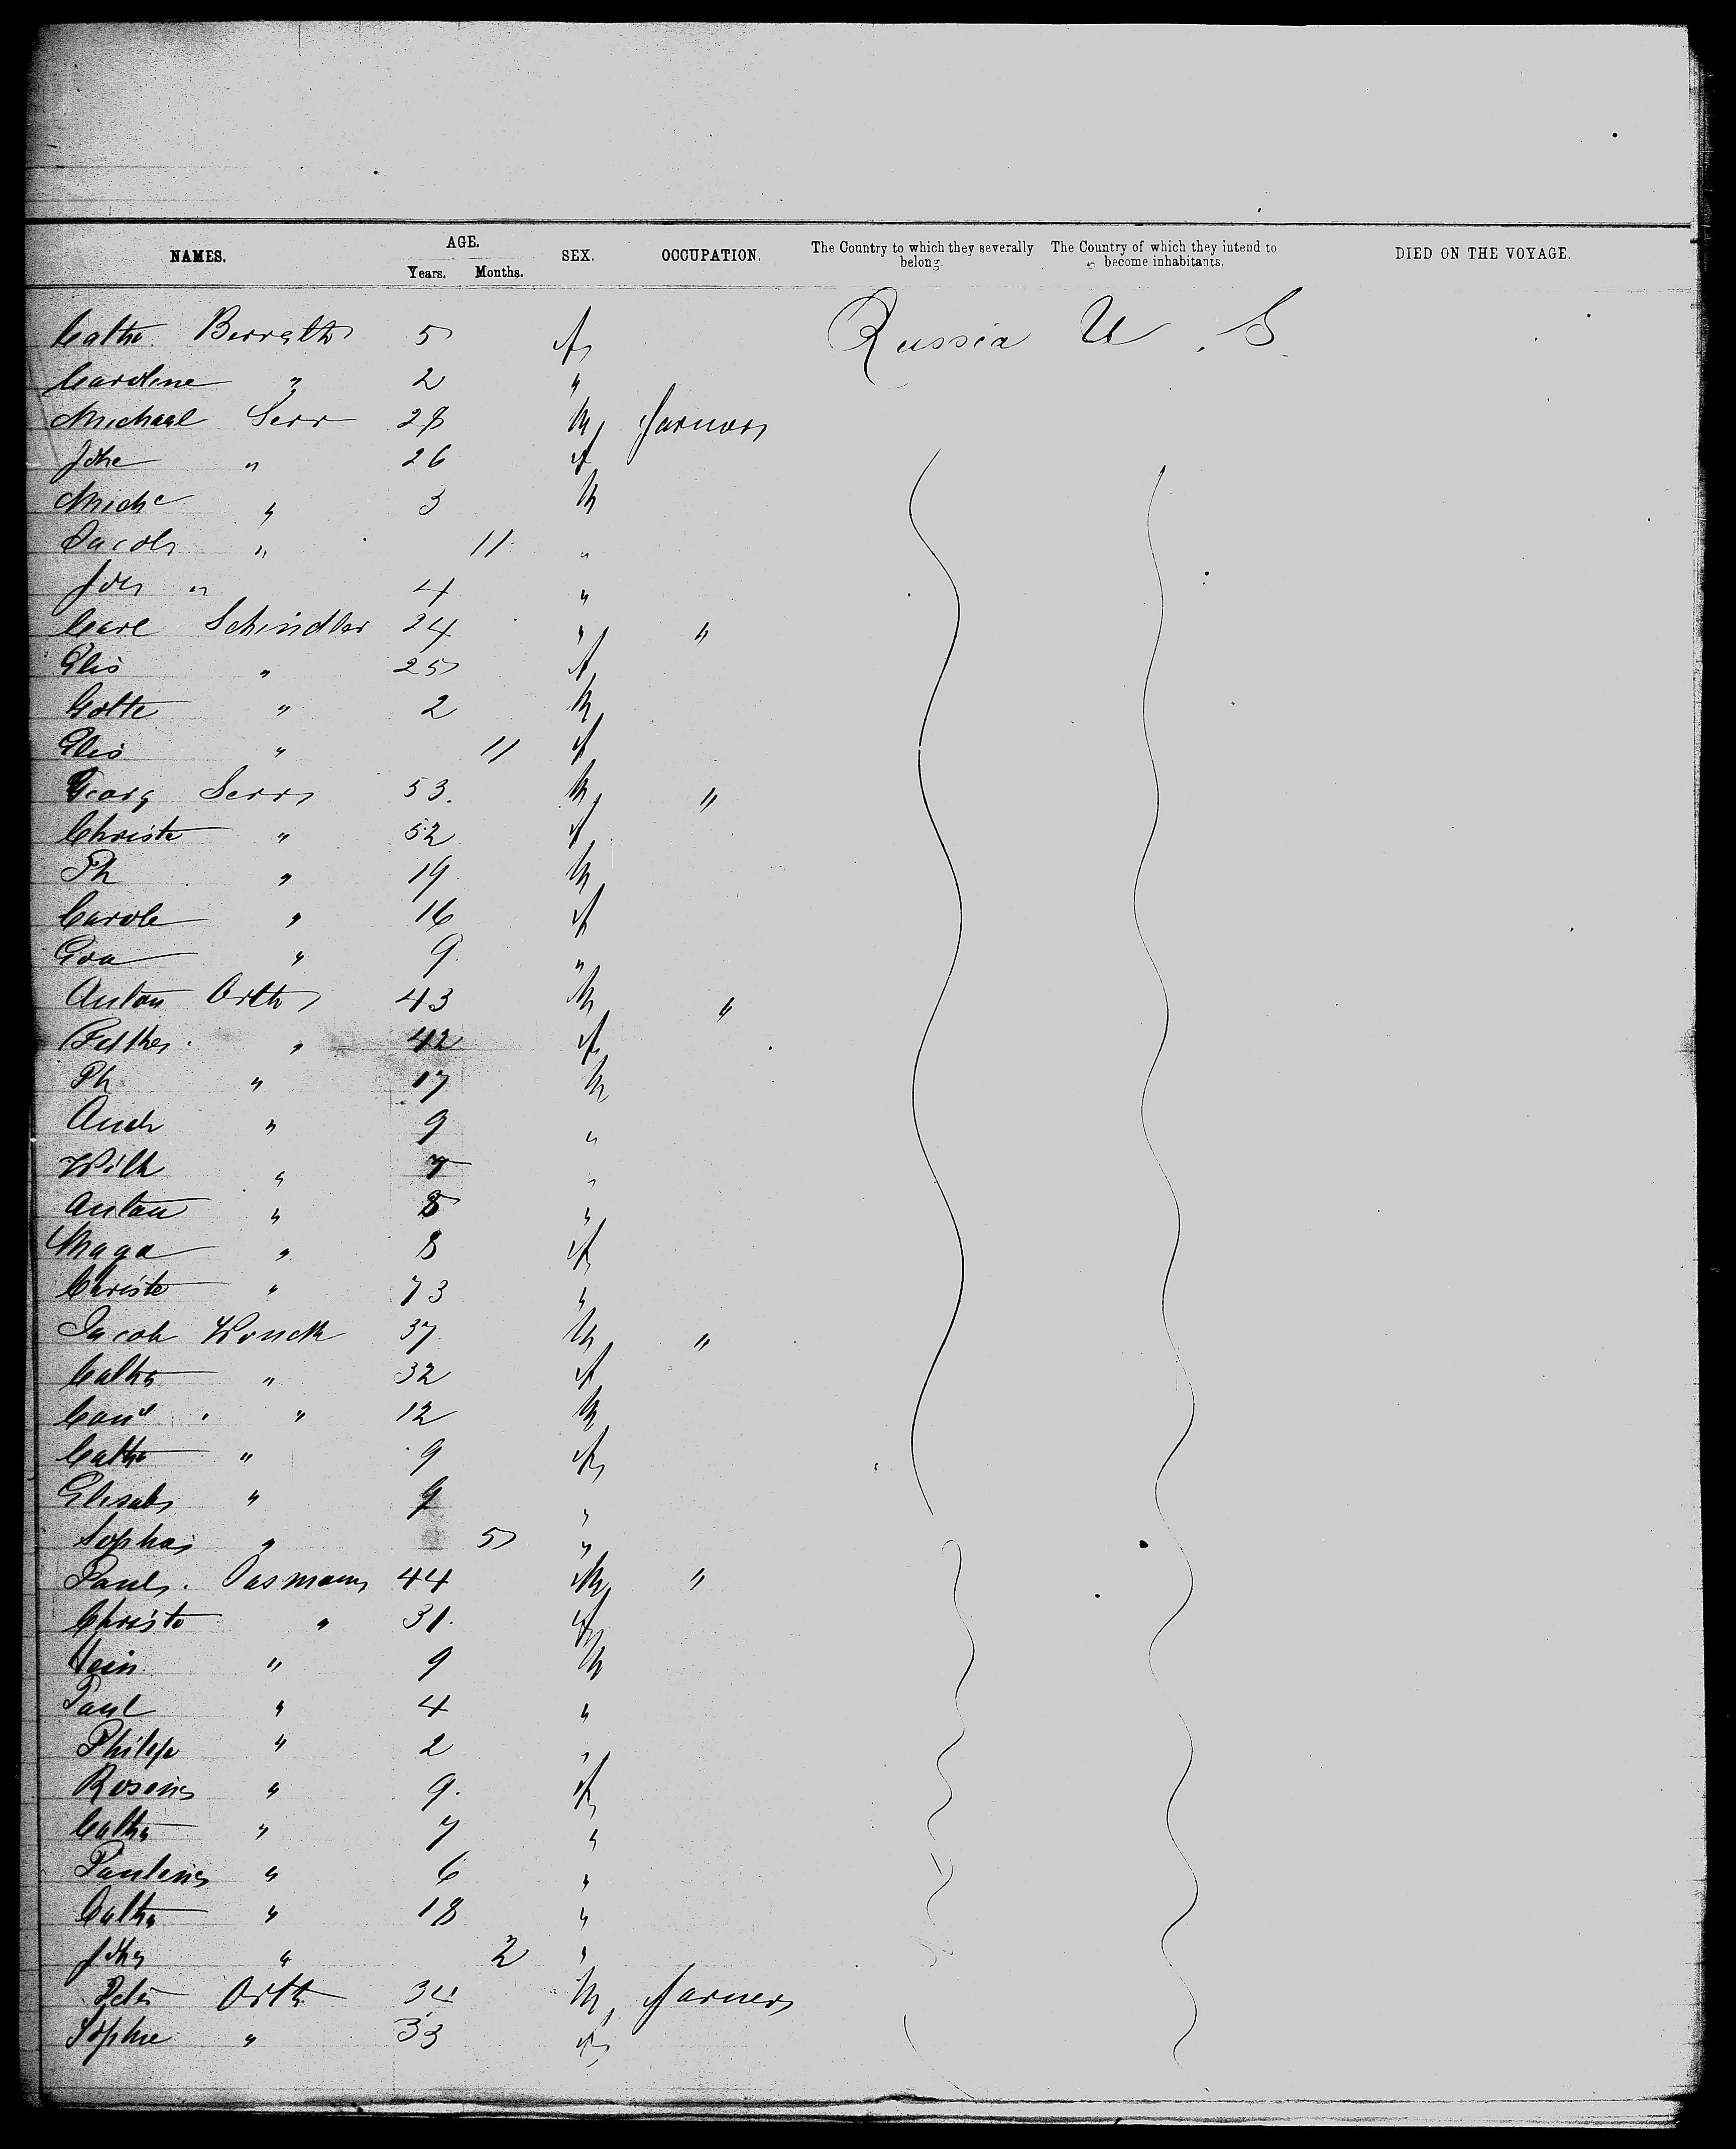 NAMES. AGE. Years. Months. SEX. OCCUPATION. The Country to which they severally belong. The Country of which they intend to become inhabitants. DIED ON THE VOYAGE.
Cathe. Berreth 5 f Russia U. S.
Caroline " 2 "
Michael Serr 28 m farmer
Johe " 26 f
Miche " 3 m
Jacob " 11 "
Joh " 4 "
Carl Schindler 24 " "
Elis " 25 f
Gottl " 2 m
Elis " 11 f
Georg Serr 53. m "
Christe " 52 f
Ph " 19 m
Carole " 16 f
Eva " 9 "
Anton Orth 43 m "
" 42 f
Ph " 17 m
Andr " 9 "
Wilh " 7 "
Anton " "
Maga " 8 f
Christe " 73 "
Jacob Wonck 37 m "
Catha " 32 f
" 12 m
Cathe " 9 f
Elisab " 9 "
Sophai " 5 "
Paul. Oasmann 44 m "
Christe " 31. f
Hein. " 9 m
Paul " 4 "
Philipp " 2 "
Rosina " 9. f
Catha " 7 "
Paulina " 6 "
Catha " 18 "
Joha " 2 "
Peter Orth 34 m farmer
Sophie " 33 f